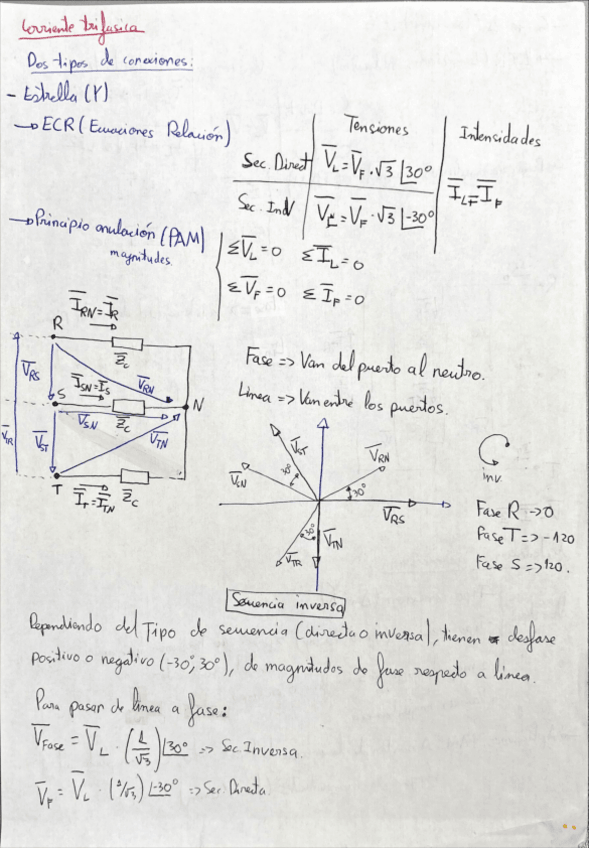 Corriente trifasica
Dos tipos de conexiones:
- Estrella (Y)
→ ECR (Ecuaciones Relación)
Tensiones
Intensidades
Sec. Direct
V̅_L = V̅_F · √3 ∠30°
Sec. Inv
V̅_L = V̅_F · √3 ∠-30°
I̅_L = I̅_F
→ Principio anulación (PAM)
magnitudes.
ΣV̅_L = 0 ΣI̅_L = 0
ΣV̅_F = 0 ΣI̅_F = 0
I̅_RN = I̅_R
R
Z̅c
V̅_RS
V̅_RN
I̅_SN = I̅_S
S
N
V̅_SN
Z̅c
V̅_TN
V̅_TR
V̅_ST
T
I̅_T = I̅_TN
Z̅c
Fase => Van del puerto al neutro.
Línea => Van entre los puertos.
V̅_ST
V̅_RN
V̅_SN
30°
30°
V̅_RS
30°
V̅_TN
V̅_TR
inv.
Fase R → 0
Fase T => -120
Fase S => 120.
Secuencia inversa
Dependiendo del Tipo de secuencia (directa o inversa), tienen desfase
positivo o negativo (-30°, 30°), de magnitudes de fase respecto a línea.
Para pasar de línea a fase:
V̅_Fase = V̅_L · (1/√3) ∠30° => Sec. Inversa.
V̅_F = V̅_L · (1/√3) ∠-30° => Sec. Directa